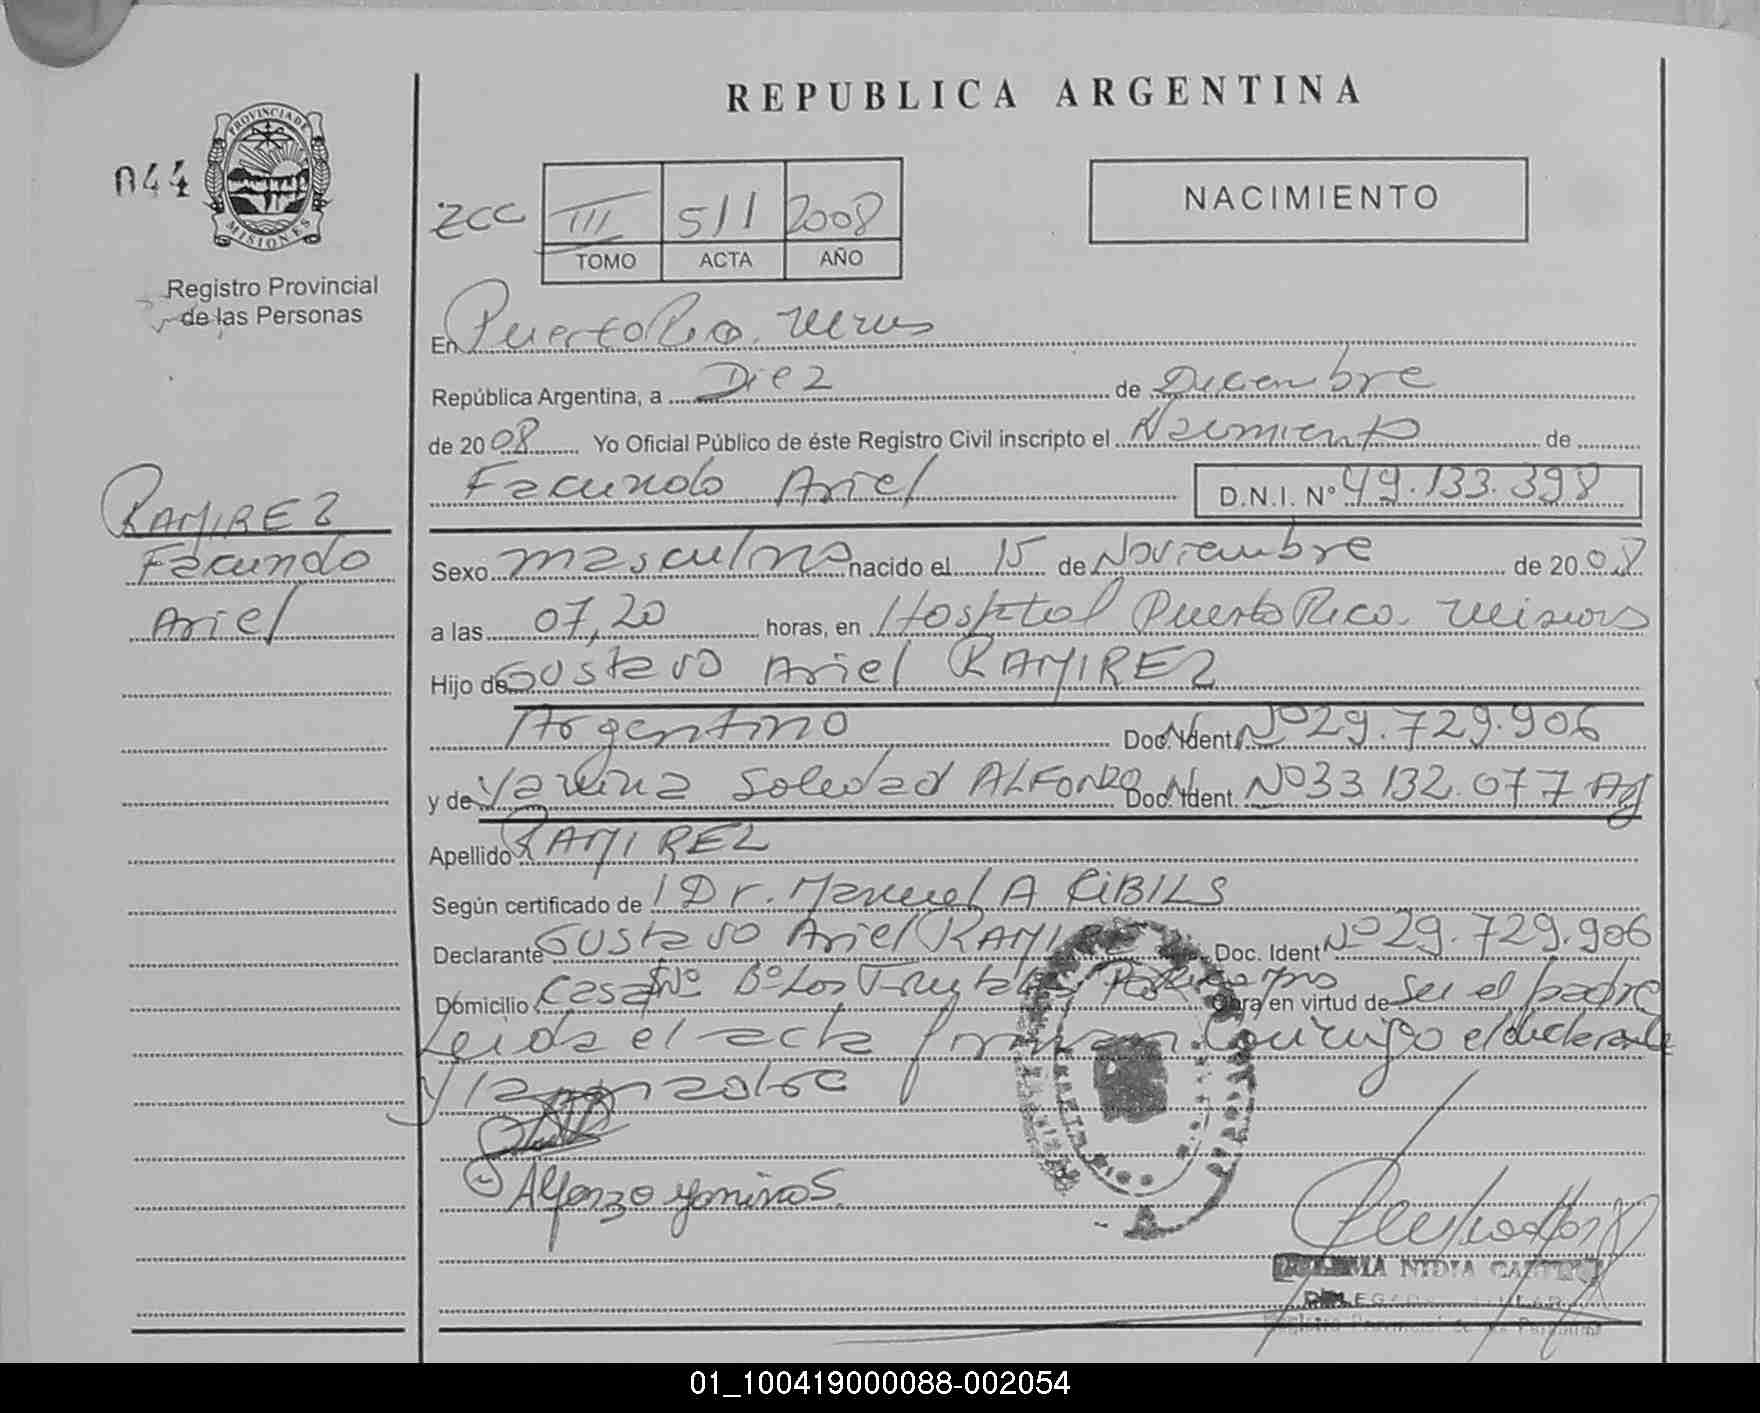 REPUBLICA ARGENTINA
044
PROVINCIA DE
MISIONES
Registro Provincial
de las Personas
NACIMIENTO
ZCC III 511 2008
TOMO ACTA AÑO
En Puerto Rico. Mnes
República Argentina, a Diez de Diciembre
de 2008 Yo Oficial Público de éste Registro Civil inscripto el Nacimiento de
Facundo Ariel D.N.I. Nº 49.133.398
RAMIREZ
Facundo
Ariel
Sexo masculino nacido el 15 de Noviembre de 2008
a las 07,20 horas, en Hospital Puerto Rico. Misiones
Hijo de Gustavo Ariel RAMIREZ
Argentino Doc. Ident. Nº 29.729.906
y de Yanina Soledad ALFONZO Doc. Ident. Nº 33.132.077 Arg
Apellido RAMIREZ
Según certificado de Dr. Manuel A RIBILS
Declarante Gustavo Ariel RAMIREZ Doc. Ident Nº 29.729.906
Domicilio Casa S/Nº Bº Los Obra en virtud de ser el padre
Leida el acta firman conmigo el declarante
y la
Alfonzo Yanina S.
NIDIA
Registro Provincial de las Personas
01_100419000088-002054